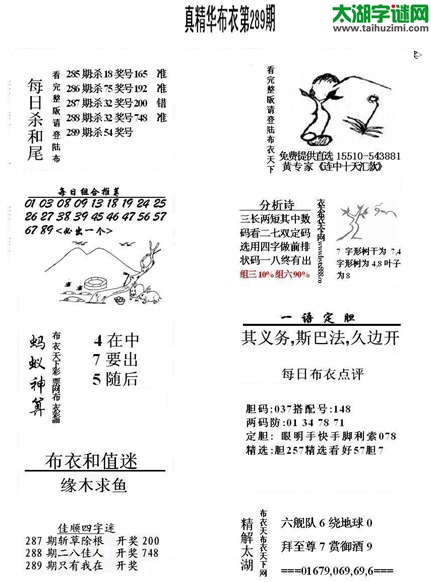 太湖字谜网
www.taihuzimi.com
真精华布衣第289期
每日杀和尾
看完整版请登陆布
285期杀18奖号165 准
286期杀75奖号192 准
287期杀32奖号200 错
288期杀32奖号748 准
289期杀54奖号
每日组合推荐
01 03 08 09 13 18 19 24 25
26 27 38 39 45 46 47 56 57
67 89 <必出一个>
蚂蚁神算
4 在中
7 要出
5 随后
布衣和值迷
缘木求鱼
佳顺四字迷
287 期斩草除根 开奖 200
288 期二八佳人 开奖 748
289 期只有我在 开奖
看完整版请登陆布衣天下
免费提供直选 15510-543881
黄专家《连中十天汇款》
分析诗
三长两短其中数
码看二七双定码
选用四字做前排
状码一八终有出
组三10%组六90%
7 字形树干为 7,4
字形树为 4,8 叶子
为 8
一语定胆
其义务,斯巴法,久边开
每日布衣点评
胆码:037搭配号:148
两码防:01 34 78 71
定胆: 眼明手快手脚利索078
精选:胆257精选看好57胆7
精解太湖
布衣天下布衣天下网
六舰队 6 绕地球 0
拜至尊 7 赏御酒 9
===01679,069,69,6===